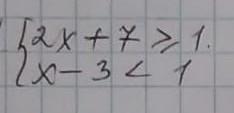 2x + 7 ≥ 1.
x - 3 < 1